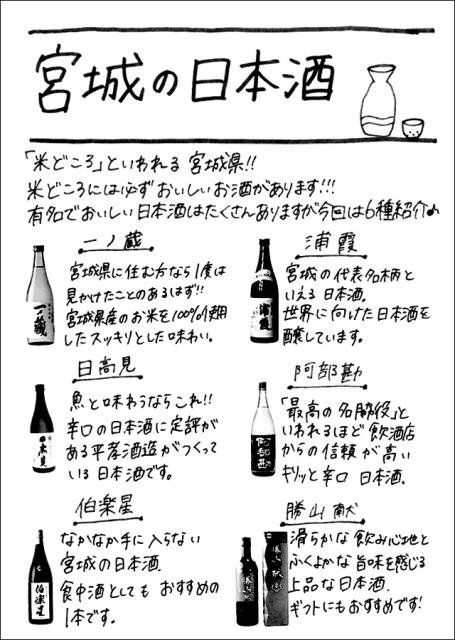 宮城の日本酒
「米どころ」といわれる宮城県!!
米どころには必ずおいしいお酒があります!!!
有名でおいしい日本酒はたくさんありますが今回は6種紹介♪
一ノ蔵
宮城県に住む方なら1度は
見かけたことのあるはず!!
宮城県産のお米を100%使用
したスッキリとした味わい。
一ノ蔵
浦霞
宮城の代表名柄と
いえる日本酒.
世界に向けた日本酒を
醸しています。
浦霞
日高見
魚と味わうならこれ!!
辛口の日本酒に定評が
ある平孝酒造がつくって
いる日本酒です。
日高見
阿部勘
「最高の名脇役」と
いわれるほど飲酒店
からの信頼が高い
キリッと辛口日本酒.
阿部勘
伯楽星
なかなか手に入らない
宮城の日本酒.
食中酒としてもおすすめの
1本です。
伯楽星
勝山 献
滑らかな飲み心地と
ふくよかな旨味を感じる
上品な日本酒.
ギフトにもおすすめです!